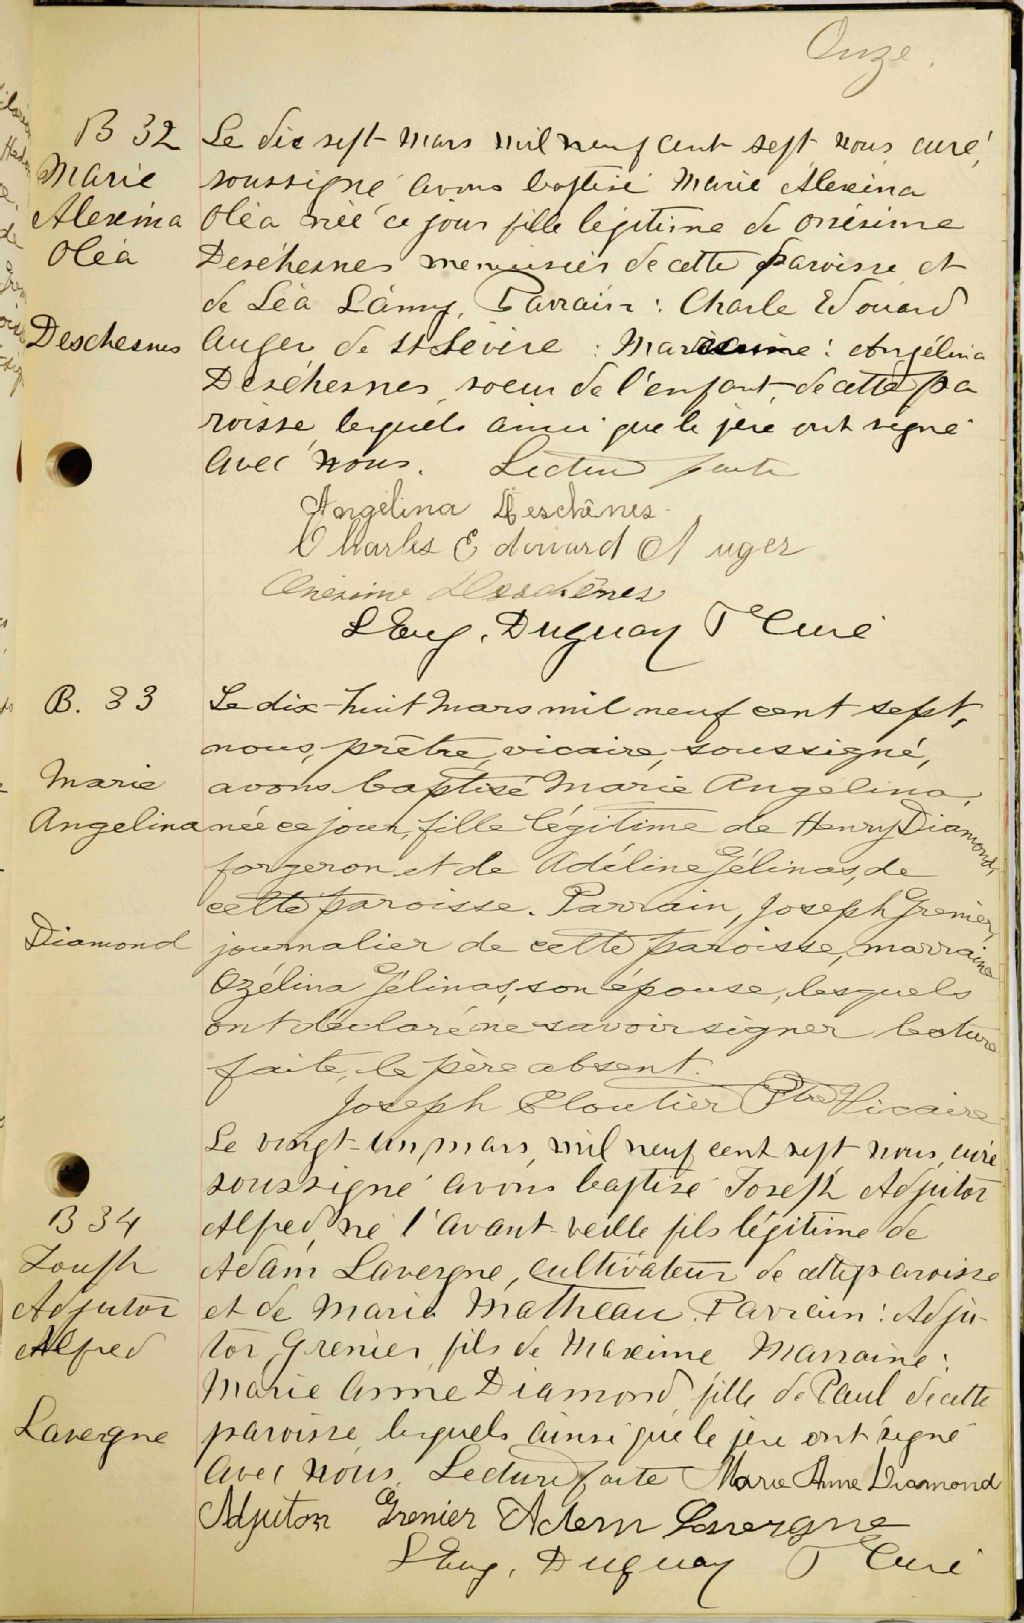 Onze.
B 32
Marie
Alexina
Oléa
Deschesnes
Le dix sept mars mil neuf cent sept nous, curé,
soussigné avons baptisé Marie Alexina
Oléa née ce jour fille légitime de Onésime
Deschesnes menuisier de cette paroisse et
de Léa Lamy, Parrain : Charle Edouard
Auger de St Sévère : Marraine : Angélina
Deschesnes, soeur de l'enfant, de cette pa
roisse, lesquels ainsi que le père ont signé
avec nous. Lecture faite
Angélina Deschênes
Charles Edouard Auger
Onésime Deschênes
L Eug. Duguay Ptre Curé
B. 33
Marie
Angelina
Diamond
Le dix-huit Mars mil neuf cent sept,
nous, prêtre, vicaire, soussigné,
avons baptisé Marie Angelina,
née ce jour, fille légitime de Henry Diamond,
forgeron et de Adéline Gélinas, de
cette paroisse. Parrain, Joseph Grenier,
journalier de cette paroisse, marraine
Ozélina Gélinas, son épouse, lesquels
ont déclaré ne savoir signer lecture
faite, le père absent.
Joseph Cloutier Ptre Vicaire
B 34
Joseph
Adjutor
Alfred
Lavergne
Le vingt-un mars, mil neuf cent sept nous, curé
soussigné avons baptisé Joseph Adjutor
Alfred, né l'avant-veille fils légitime de
Adam Lavergne, cultivateur de cette paroisse
et de Maria Matheau. Parrain : Adju-
tor Grenier, fils de Maxime, Marraine :
Marie Anne Diamond, fille de Paul de cette
paroisse lesquels ainsi que le père ont signé
avec nous. Lecture faite Marie Anne Diamond
Adjutor Grenier Adem Lavergne
L Eug. Duguay Ptre Curé